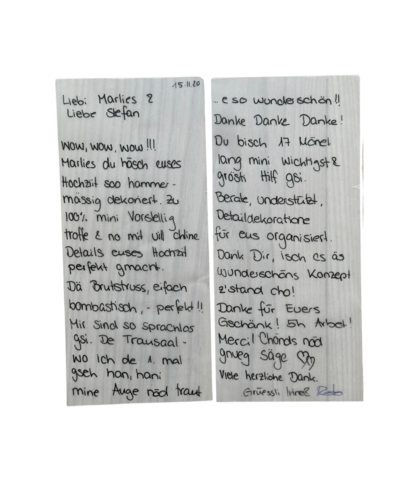 15.11.20
Liebi Marlies &
Liebe Stefan
Wow, wow, wow!!!
Marlies du hösch euses
Hochzit soo hammer-
mässig dekoriert. Zu
100% mini Vorstellig
troffe & no mit vill chline
Details euses Hochzit
perfekt gmacht.
Dä Brutstruss, eifach
bombastisch, - perfekt!!
Mir sind so sprachlos
gsi. De Trausaal -
wo ich de 1. mal
gseh han, hani
mine Auge nöd traut
..e so wunderschön!!
Danke Danke Danke!
Du bisch 17 Mönet
lang mini wichtigst &
gröst Hilf gsi.
Berate, understützt,
Detaildekoratione
für eus organisiert.
Dank Dir, isch es äs
wunderschöns Konzept
z'stand cho!
Danke für Euers
Gschänk! 5h Arbeit!
Merci! Chönds nöd
gnueg säge
Viele herzliche Dank.
Grüessli Irine &